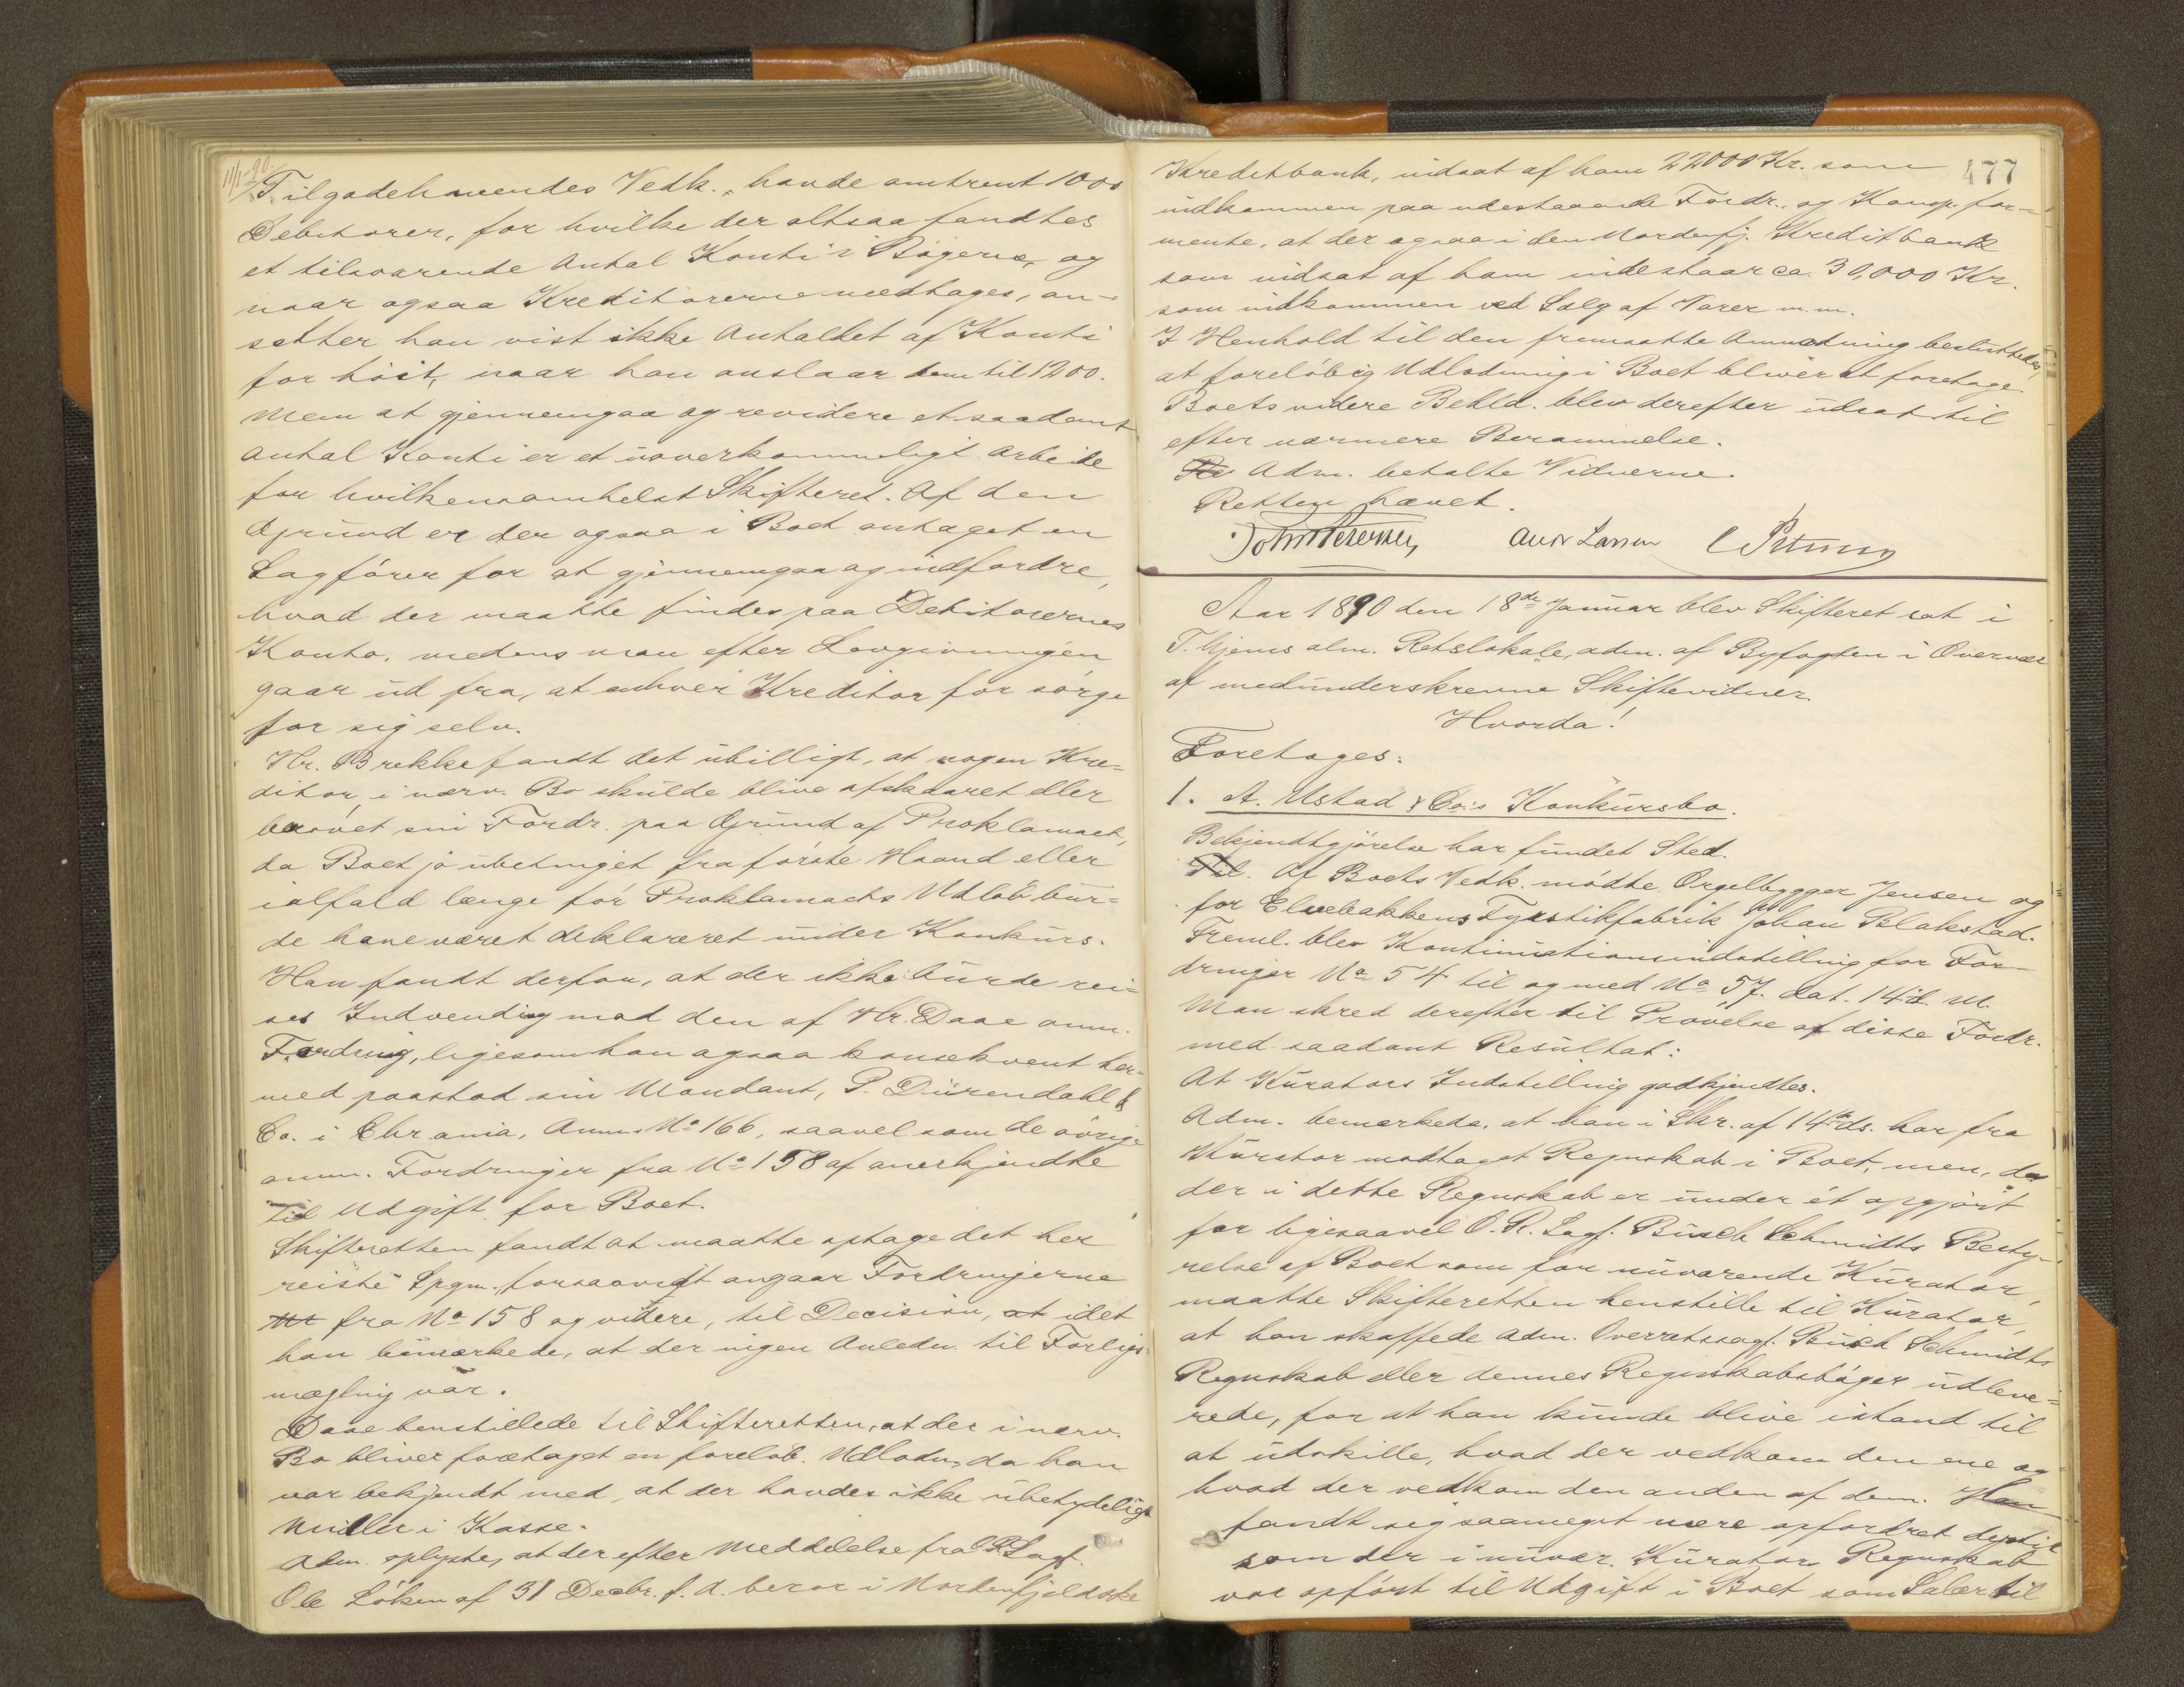 11/1-90.
Tilgodehavendes Vedk., havde omtrent 1000
Debitorer, for hvilke der altsaa fandtes
et tilsvarende Antal Konti i Bøgerne, og
naar ogsaa Kreditorerne medtages, an-
sætter han vist ikke Antallet af Konti
for høit, naar han anslaar dem til 1200.
Men at gjennemgaa og revidere et saadant
Antal Konti er et uoverkommeligt Arbeide
for hvilkensomhelst Skifteret. Af den
Grund er der ogsaa i Boet antaget en
Sagfører for at gjennemgaa og indfordre,
hvad der maatte findes paa Debitorernes
Konto, medens man efter Lovgivningen
gaar ud fra, at enhver Kreditor før sørge
for sig selv.
Hr. Brekke fandt det ubilligt, at nogen Kre-
ditor i nærv. Bo skulde blive afskaaret eller
berøvet sin Fordr. paa Grund af Proklamaet,
da Boet jo ubetinget fra første Haand eller
ialfald længe før Proklamaets Udløb bur-
de have været deklareret under Konkurs.
Han fandt derfor, at der ikke burde rei-
ses Indvending mod den af Hr. Daae anm.
Fordring, ligesom han ogsaa konsekvent her-
med paastod sin Mandant, P. Dürendahl &
Co. i Chrania, Anm. No 166, saavel som de øvrige
anm. Fordringer fra No 158 af anerkjendte
til Udgift for Boet.
Skifteretten fandt at maatte optage det her
reiste Spgm., forsaavidt angaar Fordringerne
fra No 158 og videre, til Decision, idet
han bemærkede, at der ingen Anledn. til Forligs-
mægling var.
Daae henstillede til Skifteretten, at der i nærv.
Bo bliver foretaget en foreløb. Udlodn., da han
var bekjendt med, at der havdes ikke ubetydelige
Midler i Kasse.
Adm. oplyste, at der efter Meddelelse fra O.R.Sagf.
Ole Løken af 31 Decbr. f. A. beror i Nordenfjeldske
477
Kreditbank, indsat af ham 22000 Kr. som
indkommen paa udestaaende Fordr., og Komp. for-
mente, at der ogsaa i den Nordenfj. Kreditbank
som indsat af ham indestaar ca. 30,000 Kr.
som indkommen ved Salg af Varer m.m.
I Henhold til den fremsatte Anmodning besluttedes,
at foreløbig Udlodning i Boet bliver at foretage.
Boets videre Behld. blev derefter udsat til
efter nærmere Berammelse.
Adm. betalte Vidnerne.
Retten hævet.
Andr Larsen C Petersen
Aar 1890 den 18de Januar blev Skifteret sat i
T.hjems alm. Retslokale, adm. af Byfogden i Overvær
af medunderskrevne Skiftevidner.
Hvorda!
Foretages:
1. A. Ustad & Co.'s Konkursbo.
Bekjendtgjørelse har fundet Sted.
Af Boets Vedk. mødte Orgelbygger Jensen og
for Elvebakkens Fyrstikfabrik Johan Blakstad.
Freml. blev Kontinuationsindstilling for For-
dringer No 54 til og med No 57. dat. 14 d. M.
Man skred derefter til Prøvelse af disse Fordr.
med saadant Resultat:
At Kurators Indstilling godkjendtes.
Adm. bemærkede, at han i Skr. af 14de ds. har fra
Kurator modtaget Regnskab i Boet, men, da
der i dette Regnskab er under ét opgjørt
for ligesaavel O.R.Sagf. Busch Schmidts Besty-
relse af Boet som for nuværende Kurator,
maatte Skifteretten henstille til Kurator,
at han skaffede Adm. Overretssagf. Busch Schmidts
Regnskab eller dennes Regnskabsbøger udleve-
rede, for at han kunde blive istand til
at udskille, hvad der vedkom den ene og
hvad der vedkom den anden af dem. Han
fandt sig saameget mere opfordret dertil
som der i nuvær. Kurators Regnskab
var opført til Udgift i Boet som Salær til